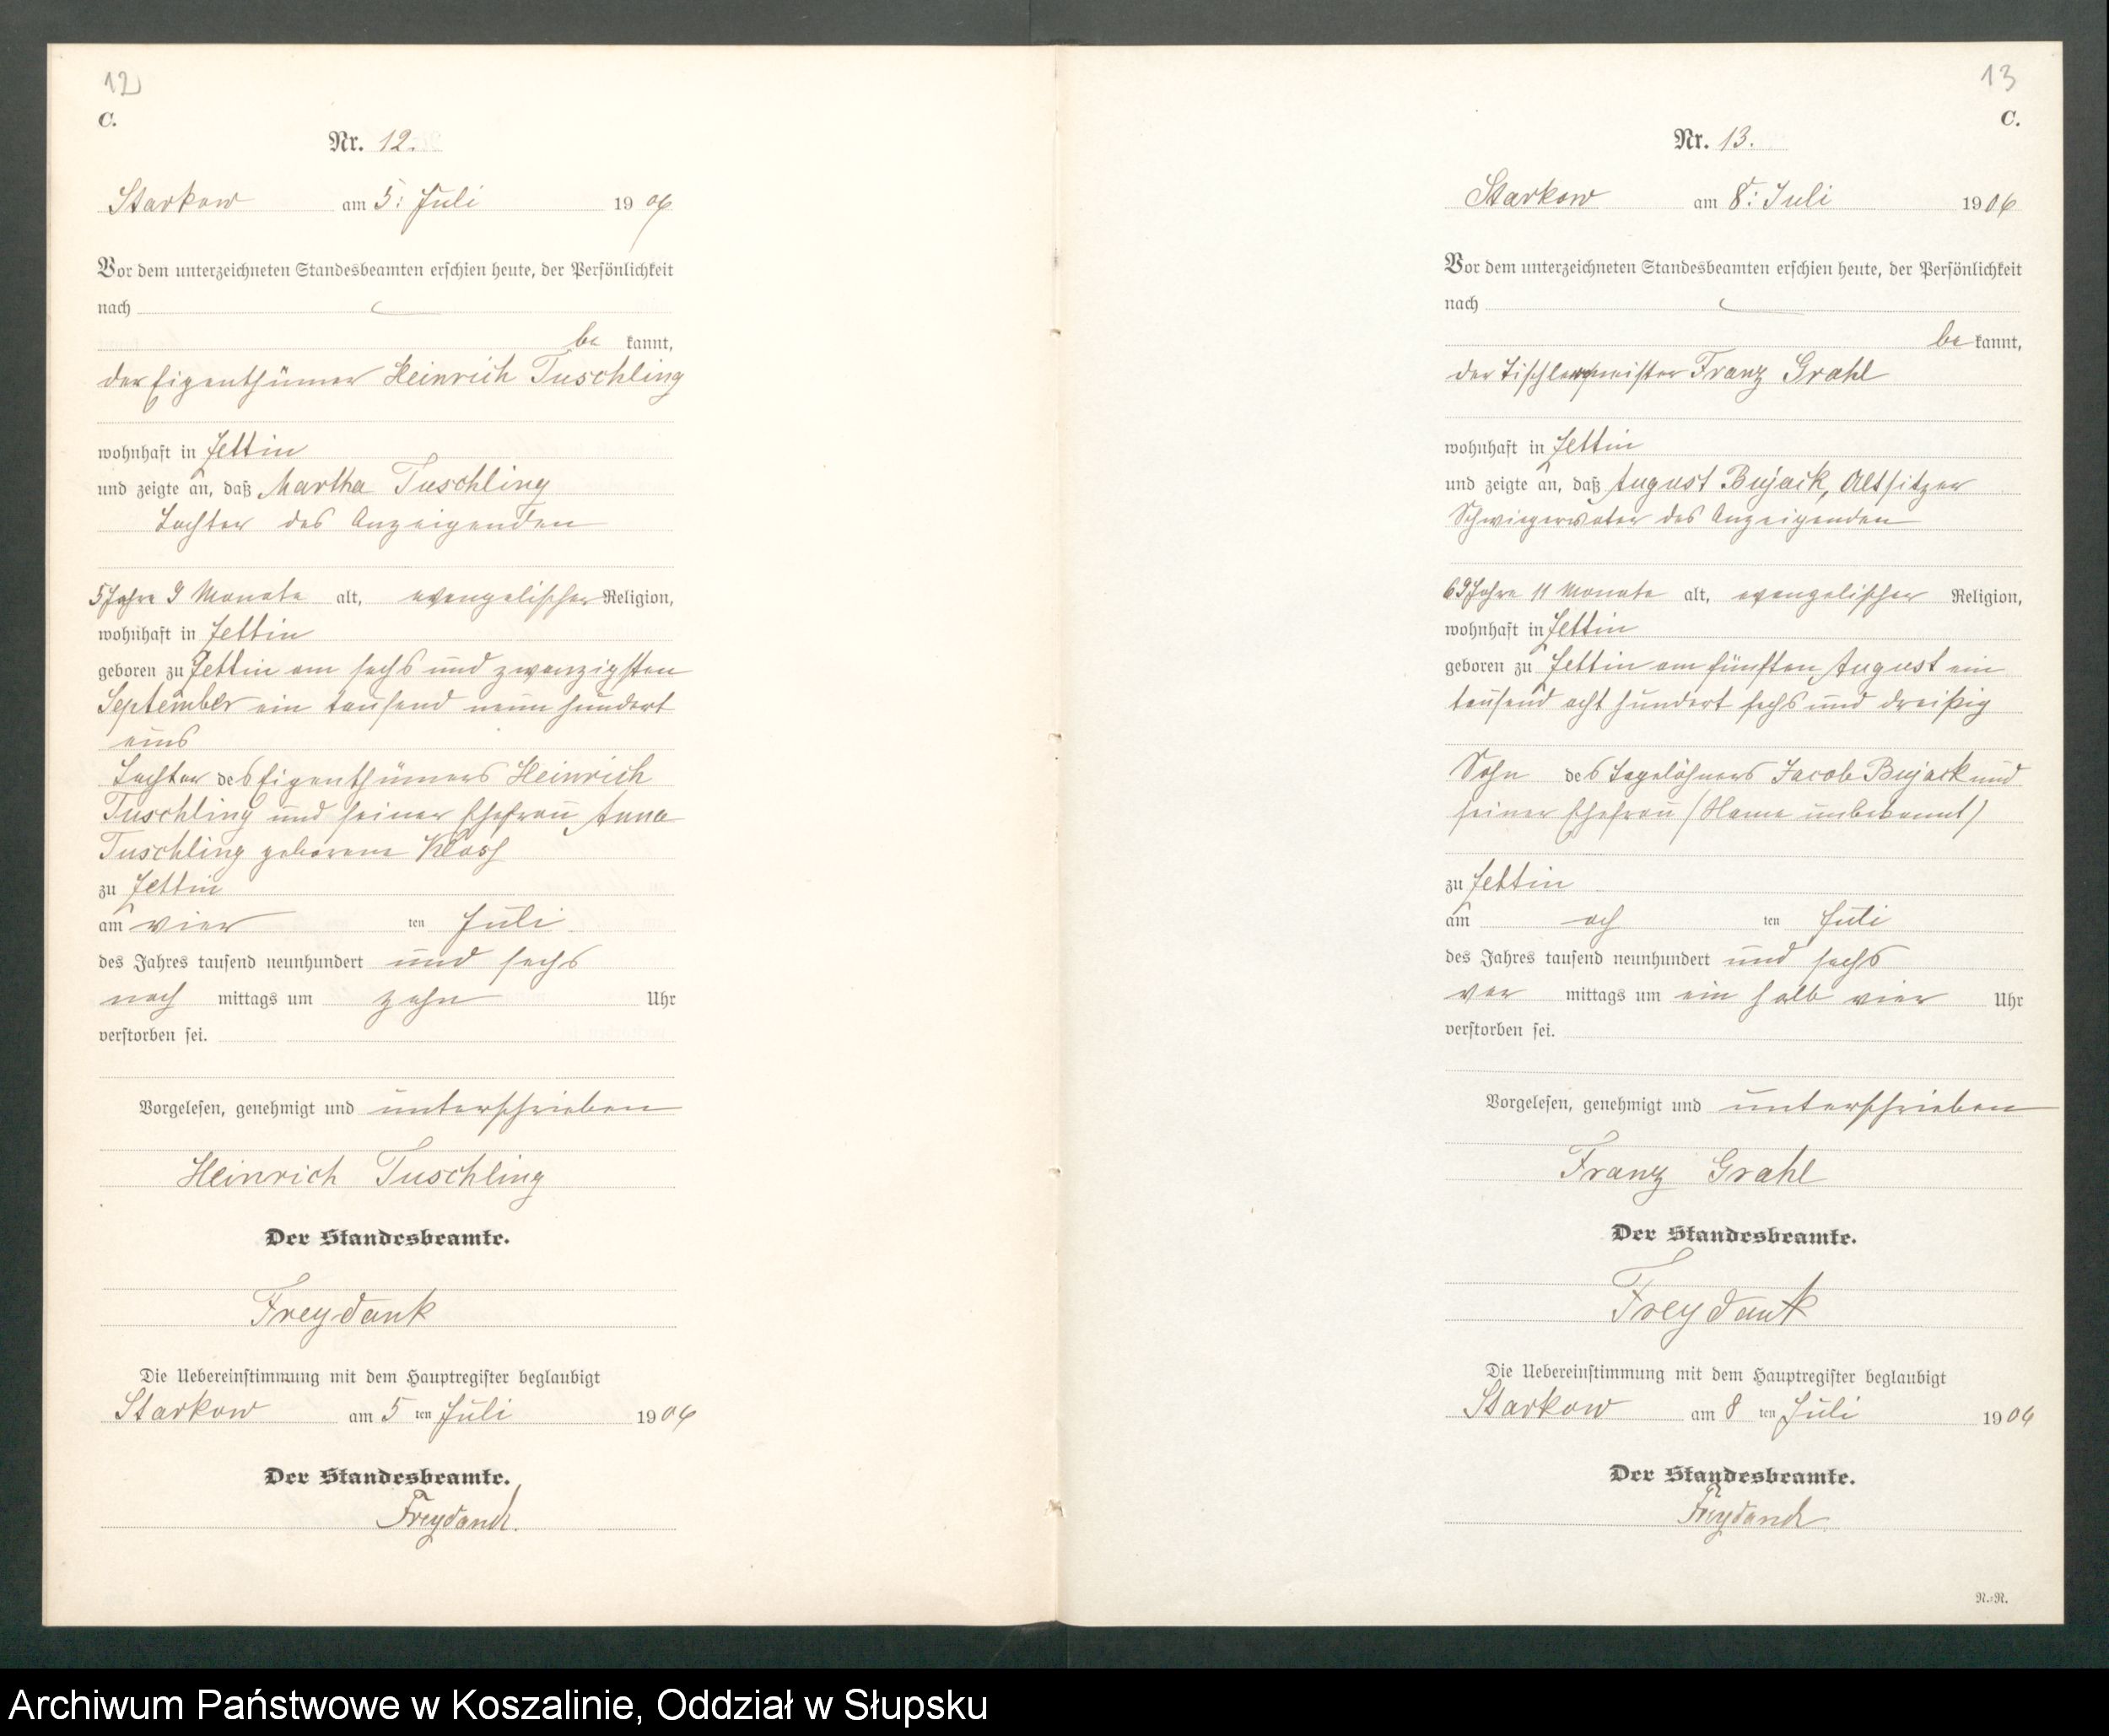 12
C.
Nr. 12.
Starkow am 5. Juli 1906
Vor dem unterzeichneten Standesbeamten erschien heute, der Persönlichkeit
nach
be kannt,
der Eigenthümer Heinrich Tuschling
wohnhaft in Jettin
und zeigte an, daß Martha Tuschling
Tochter des Anzeigenden
5 Jahre 9 Monate alt, evangelischer Religion,
wohnhaft in Jettin
geboren zu Jettin am sechs und zwanzigsten
September ein tausend neun hundert
eins
Tochter des Eigenthümers Heinrich
Tuschling und seiner Ehefrau Anna
Tuschling geborene
zu Jettin
am vier ten Juli
des Jahres tausend neunhundert und sechs
nach mittags um zehn Uhr
verstorben sei.
Vorgelesen, genehmigt und unterschrieben
Heinrich Tuschling
Der Standesbeamte.
Freydank
Die Uebereinstimmung mit dem Hauptregister beglaubigt
Starkow am 5 ten Juli 1906
Der Standesbeamte.
Freydank.
13
C.
Nr. 13.
Starkow am 8. Juli 1906
Vor dem unterzeichneten Standesbeamten erschien heute, der Persönlichkeit
nach
be kannt,
der Tischlermeister Franz Grahl
wohnhaft in Jettin
und zeigte an, daß August Bujack, Altsitzer
Schwiegervater des Anzeigenden
69 Jahre 11 Monate alt, evangelischer Religion,
wohnhaft in Jettin
geboren zu Jettin am fünften August ein
tausend acht hundert sechs und dreißig
Sohn des Tagelöhners Jacob Bujack und
seiner Ehefrau (Name unbekannt)
zu Jettin
am ach ten Juli
des Jahres tausend neunhundert und sechs
vor mittags um ein halb vier Uhr
verstorben sei.
Vorgelesen, genehmigt und unterschrieben
Franz Grahl
Der Standesbeamte.
Freydank
Die Uebereinstimmung mit dem Hauptregister beglaubigt
Starkow am 8 ten Juli 1906
Der Standesbeamte.
Freydank
N.=N.
Archiwum Państwowe w Koszalinie, Oddział w Słupsku